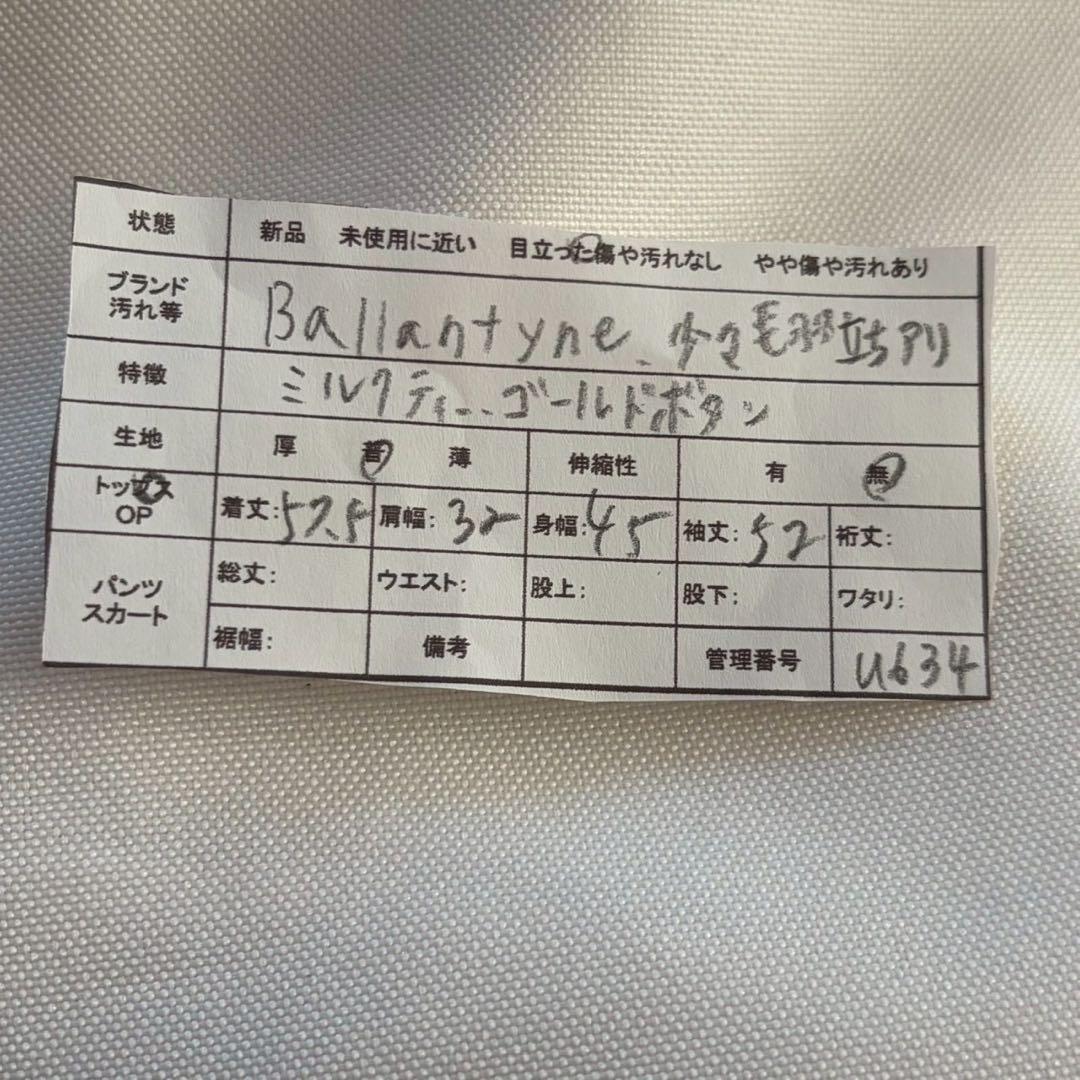 状態 新品 未使用に近い 目立った傷や汚れなし やや傷や汚れあり
ブランド
汚れ等 Ballantyne、少々毛羽立ちアリ
特徴 ミルクティー、ゴールドボタン
生地 厚 普 薄 伸縮性 有 無
トップス
OP 着丈:57.5 肩幅:32 身幅:45 袖丈:52 裄丈:
パンツ
スカート 総丈: ウエスト: 股上: 股下: ワタリ:
裾幅: 備考 管理番号 U634